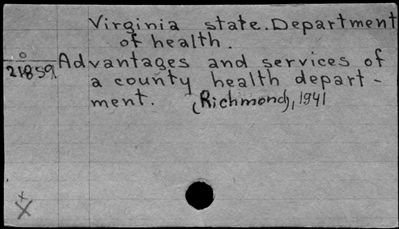 Virginia state. Department
of health.
o
21859
Advantages and services of
a county health depart-
ment. (Richmond), 1941